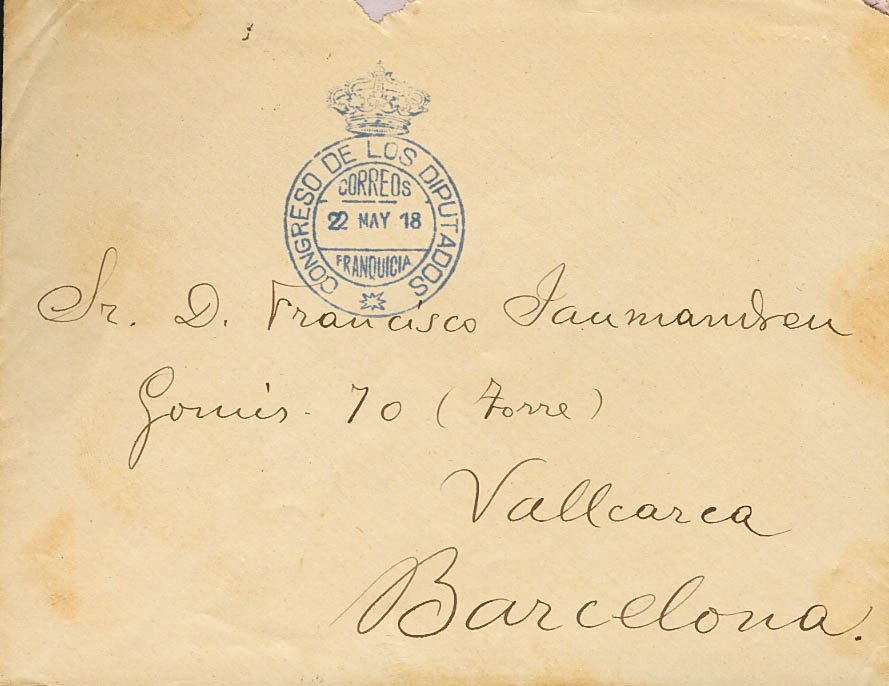 CONGRESO DE LOS DIPUTADOS
CORREOS
22 MAY 18
FRANQUICIA
Sr. D. Francisco Jaumandreu
Gomis. 70 (Torre)
Vallcarca
Barcelona.